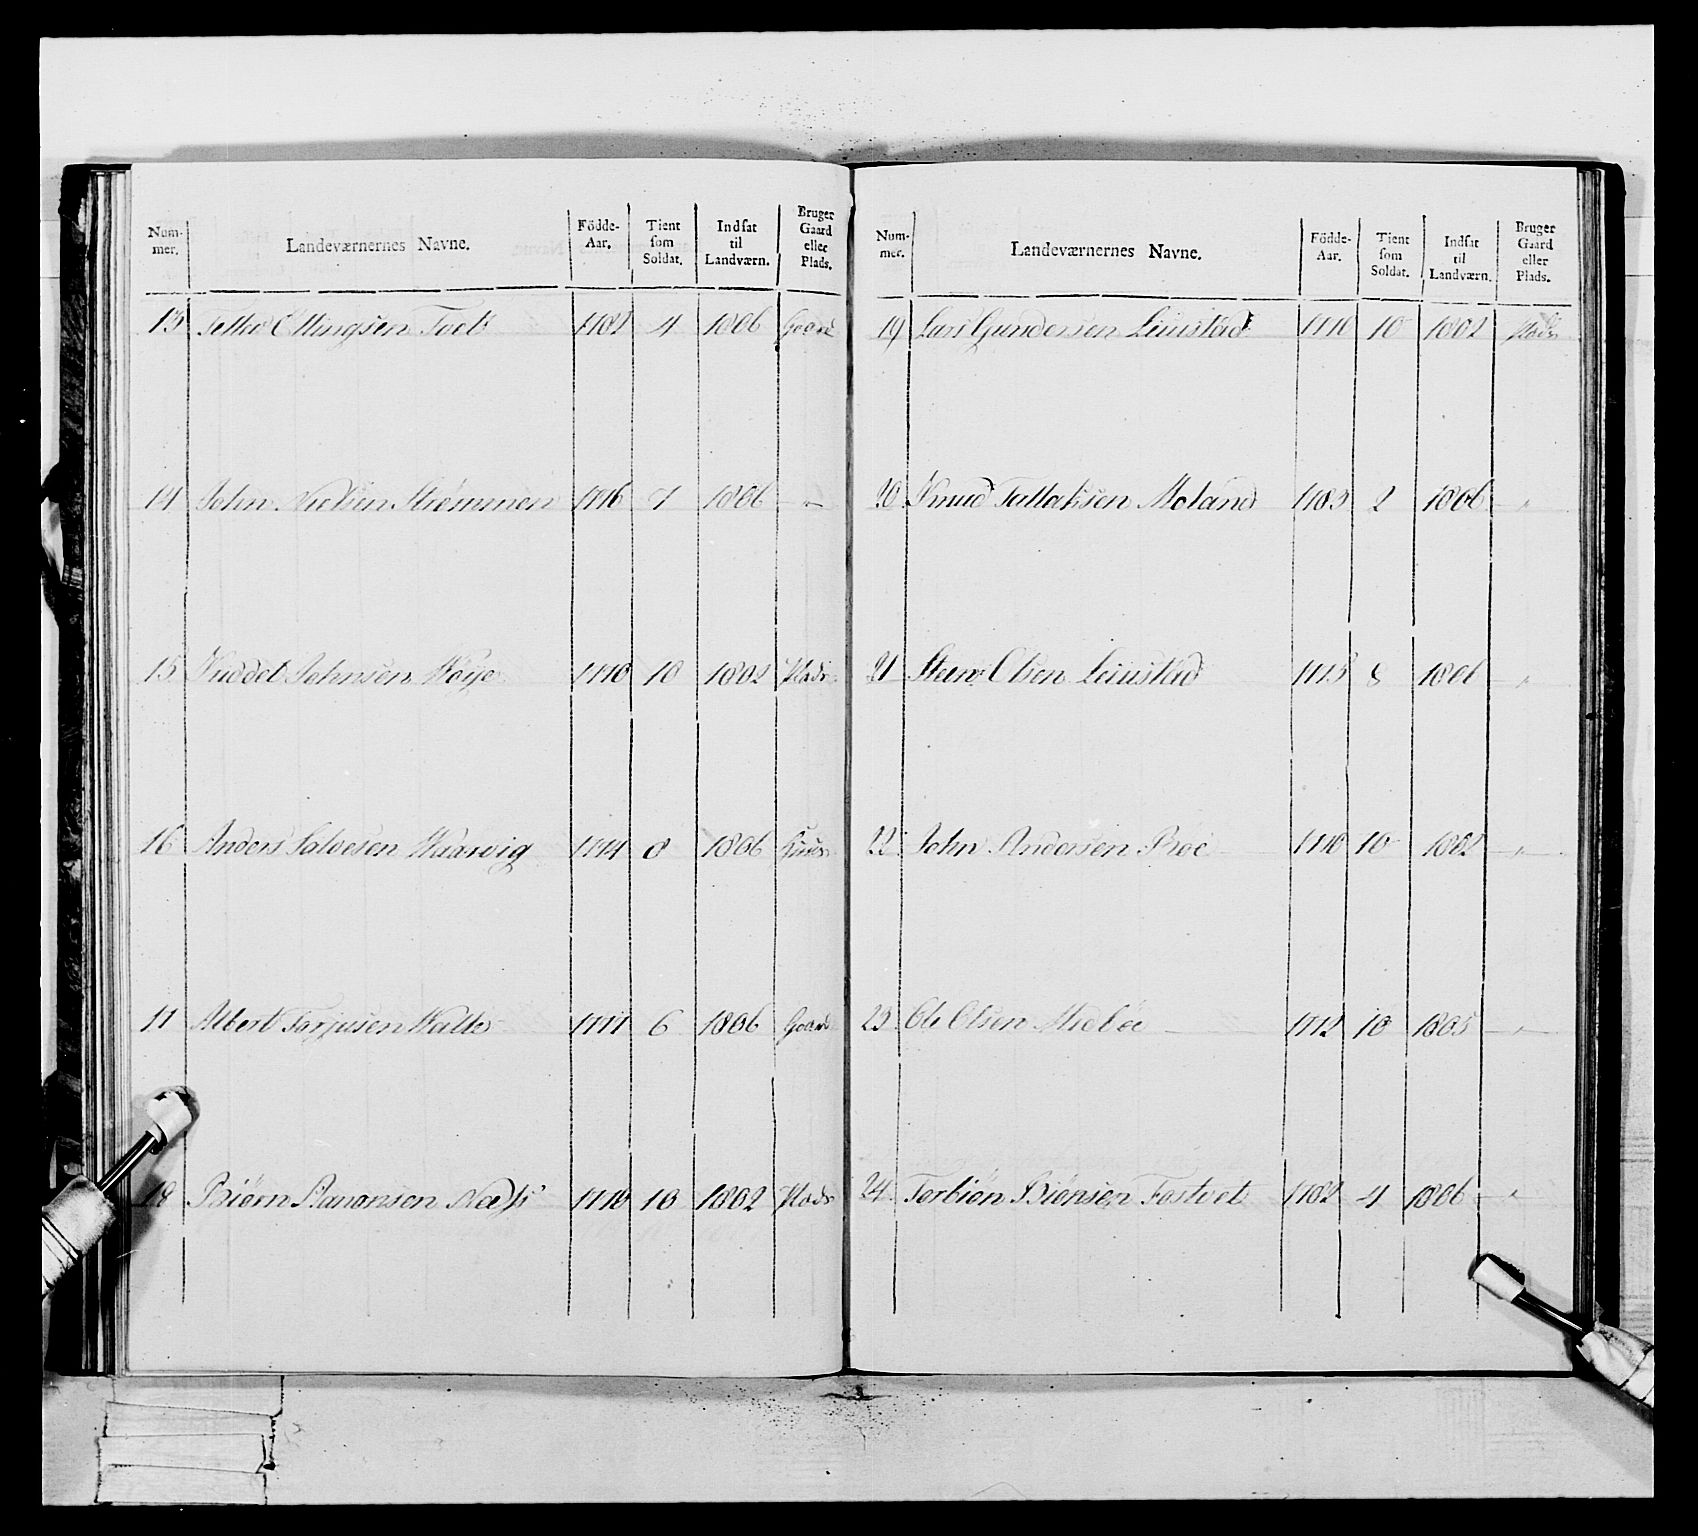 Num-
mer.
Landeværnernes Navne.
Födde-
Aar.
Tient
som
Soldat.
Indsat
til
Landværn.
Bruger
Gaard
eller
Plads.
13 Ellingsen 1782 4 1806 Gaard
14 John Nielsen Strømmen 1776 7 1806 — " —
15 Johnsen 1770 10 1802 Plads
16 Anders Salvesen 1774 8 1806 Huus
17 Albert Tarjusen 1777 6 1806 Gaard
18 Biørn Aanonsen Næss 1770 10 1802 Plads
Num-
mer.
Landeværnernes Navne.
Födde-
Aar.
Tient
som
Soldat.
Indsat
til
Landværn.
Bruger
Gaard
eller
Plads.
19 Lars Gundersen Leiustad 1770 10 1802 Plads
20 Knud Tallaksen Moland 1783 2 1806 — " —
21 Steen Olsen Leiustad 1775 8 1806 — " —
22 John Andersen 1770 10 1802 — " —
23 Ole Olsen Miebøe 1772 10 1805 — " —
24 Torbiøn Biønsen Fostvet 1782 4 1806 — " —